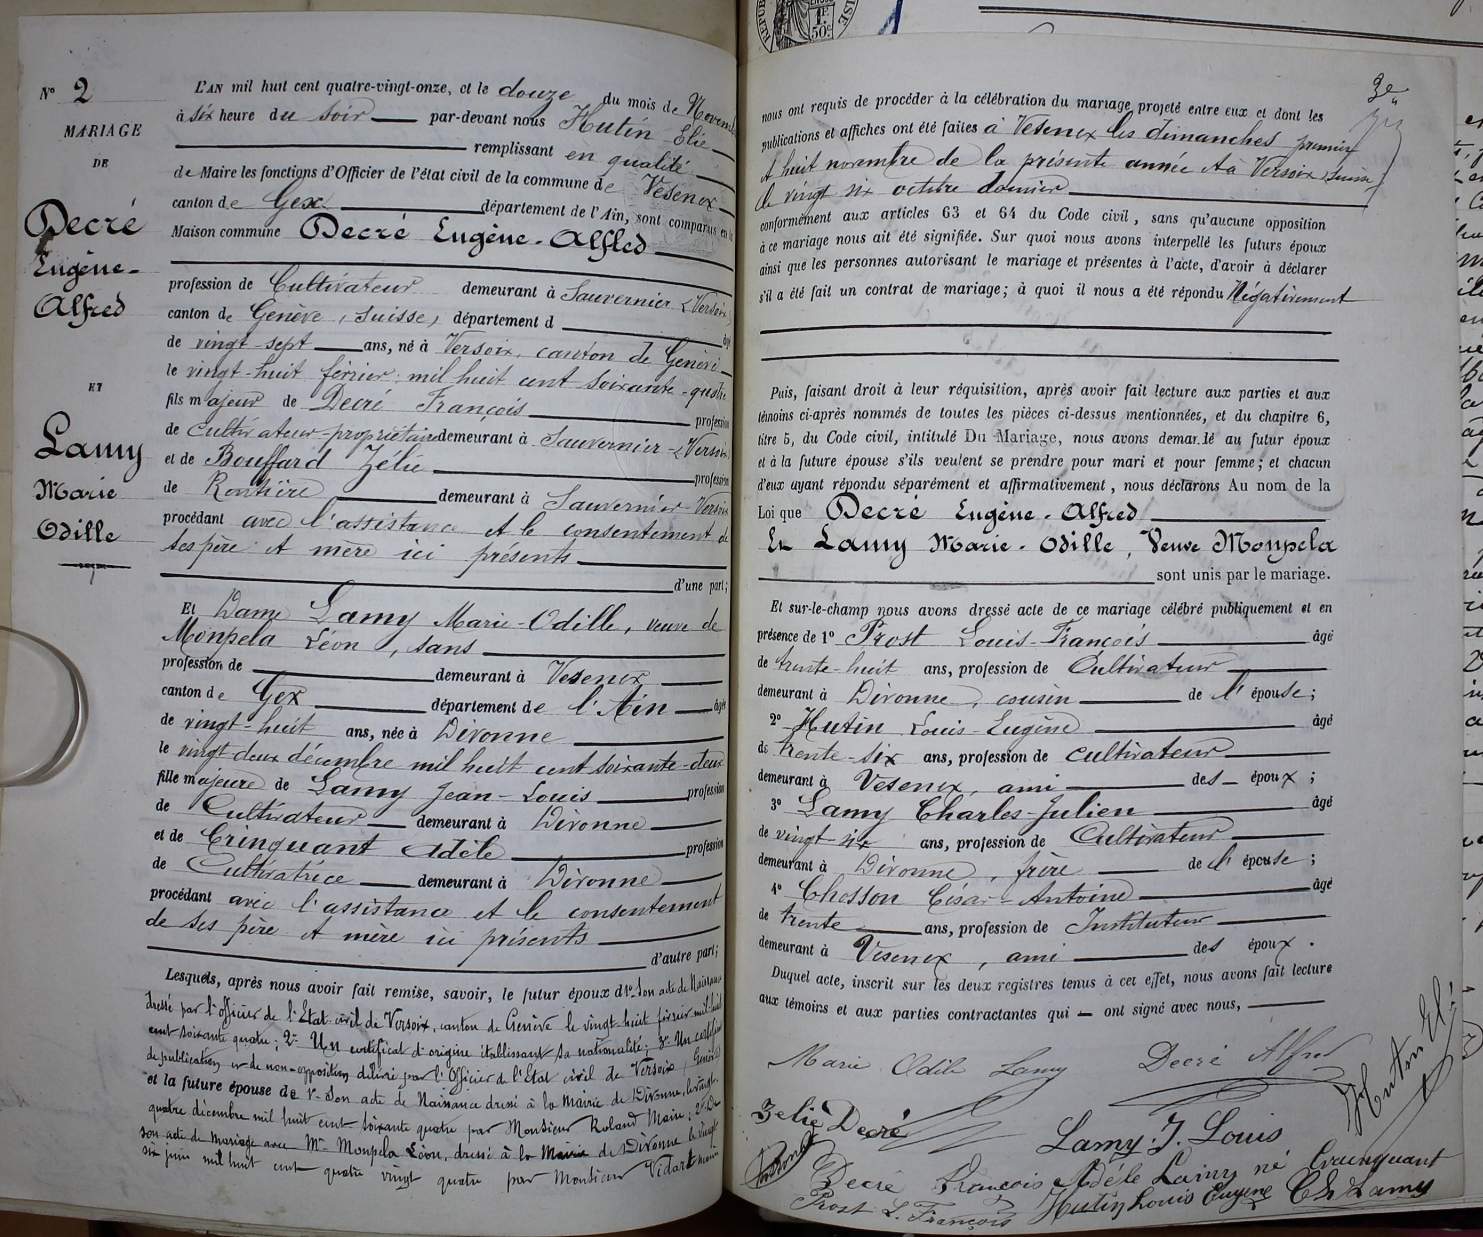 N° 2
MARIAGE
DE
Decré
Eugène-
Alfred
ET
Lamy
Marie
Odille
L'AN mil huit cent quatre-vingt-onze, et le douze du mois de Novembre
à six heure du soir par-devant nous Hutin Elie
remplissant en qualité
de Maire les fonctions d'Officier de l'état civil de la commune de Vesenex
canton de Gex département de l'Ain, sont comparus en la
Maison commune Decré Eugène-Alfred
profession de Cultivateur demeurant à Sauvernier (Versoix)
canton de Genève, (Suisse) département d âgé
de vingt-sept ans, né à Versoix, canton de Genève
le vingt-huit février mil huit cent soixante-quatre
fils majeur de Decré François profession
de cultivateur-propriétaire demeurant à Sauvernier-(Versoix)
et de Bouffard Zélie profession
de Rentière demeurant à Sauvernier-Versoix
procédant avec l'assistance et le consentement de
ses père et mère ici présents
d'une part;
Et Dame Lamy Marie-Odille, veuve de
Monpela Léon, sans
profession de demeurant à Vesenex
canton de Gex département de l'Ain âgée
de vingt-huit ans, née à Divonne
le vingt-deux décembre mil huit cent soixante-deux
fille majeure de Lamy Jean-Louis profession
de Cultivateur demeurant à Divonne
et de Crinquant Adèle profession
de Cultivatrice demeurant à Divonne
procédant avec l'assistance et le consentement
de ses père et mère ici présents
d'autre part;
Lesquels, après nous avoir fait remise, savoir, le futur époux d 1° Son acte de Naissance
dressé par l'officier de l'Etat civil de Versoix, canton de Genève le vingt-huit février mil huit
cent soixante quatre; 2° Un certificat d'origine établissant sa nationalité; 3° Un certificat
de publication et de non-opposition délivré par l'Officier de l'Etat civil de Versoix, (Genève)
et la future épouse de 1° Son acte de Naissance dressé à la Mairie de Divonne, le vingt-
quatre décembre mil huit cent soixante quatre par Monsieur Roland Maire; 2° De
son acte de mariage avec Mr Monpela Léon, dressé à la Mairie de Divonne le vingt
six juin mil huit cent quatre vingt quatre par Monsieur Vidart maire
3e
nous ont requis de procéder à la célébration du mariage projeté entre eux et dont les
publications et affiches ont été faites à Vesenex les dimanches premier
et huit novembre de la présente année et à Versoix (Suisse)
le vingt six octobre dernier
conformément aux articles 63 et 64 du Code civil, sans qu'aucune opposition
à ce mariage nous ait été signifiée. Sur quoi nous avons interpellé les futurs époux
ainsi que les personnes autorisant le mariage et présentes à l'acte, d'avoir à déclarer
s'il a été fait un contrat de mariage; à quoi il nous a été répondu Négativement
Puis, faisant droit à leur réquisition, après avoir fait lecture aux parties et aux
témoins ci-après nommés de toutes les pièces ci-dessus mentionnées, et du chapitre 6,
titre 5, du Code civil, intitulé Du Mariage, nous avons demandé au futur époux
et à la future épouse s'ils veulent se prendre pour mari et pour femme; et chacun
d'eux ayant répondu séparément et affirmativement, nous déclarons Au nom de la
Loi que Decré Eugène-Alfred
Et Lamy Marie-Odille, Veuve Monpela
sont unis par le mariage.
Et sur-le-champ nous avons dressé acte de ce mariage célébré publiquement et en
présence de 1° Prost Louis-François âgé
de trente-huit ans, profession de Cultivateur
demeurant à Divonne, cousin de l'épouse;
2° Hutin Louis-Eugène âgé
de trente-six ans, profession de cultivateur
demeurant à Vesenex, ami des époux;
3° Lamy Charles-Julien âgé
de vingt-six ans, profession de Cultivateur
demeurant à Divonne, frère de l'épouse;
4° Chosson César-Antoine âgé
de trente ans, profession de Instituteur
demeurant à Vesenex, ami des époux.
Duquel acte, inscrit sur les deux registres tenus à cet effet, nous avons fait lecture
aux témoins et aux parties contractantes qui ont signé avec nous,
Marie Odile Lamy Decré Alfred
Hutin Elie
Zelie Decré Lamy J. Louis
Decré François Adèle Lamy né Crainquant
Prost L. François Hutin Louis Eugène Ch Lamy